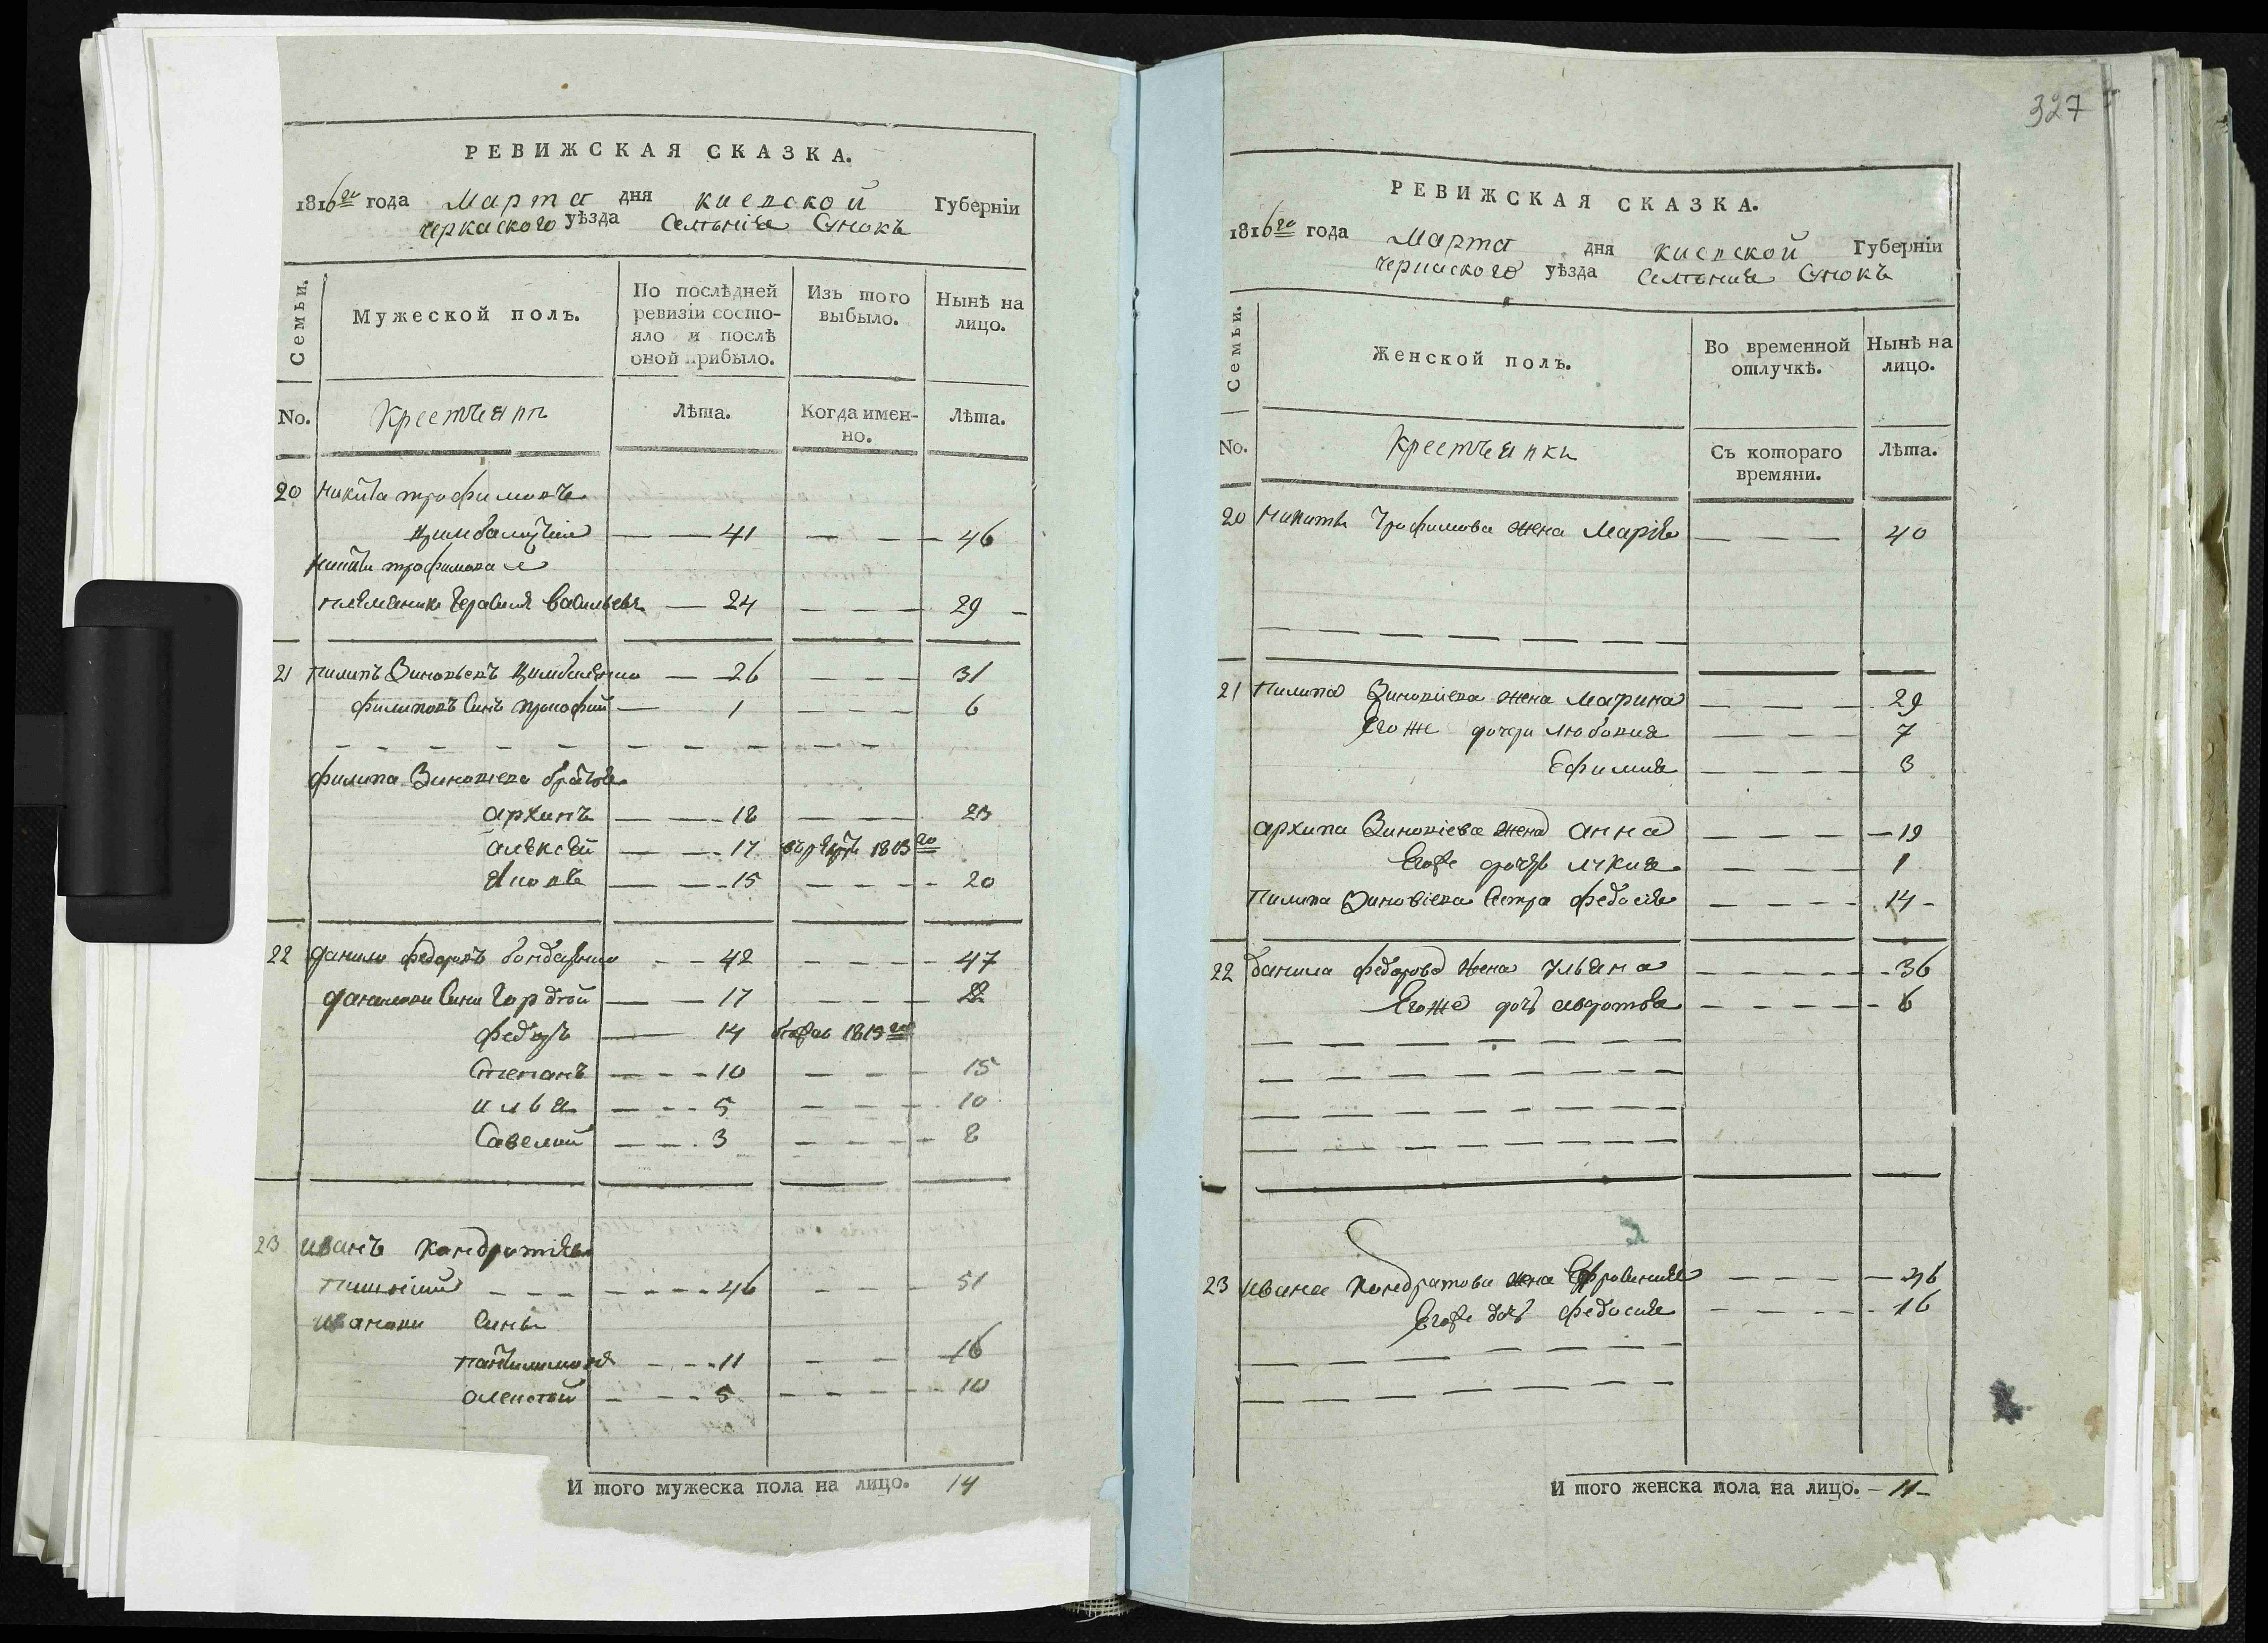 РЕВИЖСКАЯ СКАЗКА.
1816го года Марта дня киевской Губерніи
черкаского уѣзда Селѣнія
Семьи.
Мужеской полъ.
По послѣдней ревизіи состояло и послѣ оной прибыло.
Изъ того выбыло.
Нынѣ на лицо.
No.
Крестьянъ
Лѣта.
Когда именно.
Лѣта.
20 Никита трофимовъ
— — 41 — — — 46
Никиты трофимова
племяникъ Герасимъ Васильевъ — 24 — — — 29 —
21 пилипъ Зиновьевъ — 26 — — — 31
филиповъ Синъ прокофий — 1 — — — 6
филипа Зиновіева братья
архипъ — — 18 — — — 23
алексѣй — — 17 1813го
Яковъ — — 15 — — — 20
22 данило федоровъ бондаренко — — 42 — — — 47
даниловы Сини Гордѣй — — 17 — — — 22
федоръ — 14 1815го
Степанъ — — — 10 — — — 15
илья — — — 5 — — — 10
Савелий — — — 3 — — — 8
23 иванъ кондратіевъ
— — — 46 — — — 51
ивановы Сины
пантилимонъ — — — 11 — — — 16
алексѣй — — — 5 — — — 10
И того мужеска пола на лицо. 14
327
РЕВИЖСКАЯ СКАЗКА.
1816го года Марта дня киевской Губерніи
черкаского уѣзда Селѣния
Семьи.
Женской полъ.
Во временной отлучкѣ.
Нынѣ на лицо.
No.
крестьянки
Съ котораго времяни.
Лѣта.
20 Никиты Трофимова жена Марія — — — 40
21 Пилипа Зиновиева жена Марина — — — 29
Его же дочери любовия — — — 7
Ефимия — — — 3
архипа Зиновіева жена анна — — — 19
Егоже дочь лукия — — — 1
пилипа Зиновіева Сестра федосія — — — 14 —
22 данила федорова жена Ульяна — — — 36
Егоже дочь авдотья — — — 6
23 ивана кондратова жена Ефросиния — — — 46
Егоже дочь федосия — — — 16
И того женска пола на лицо. — 11 —